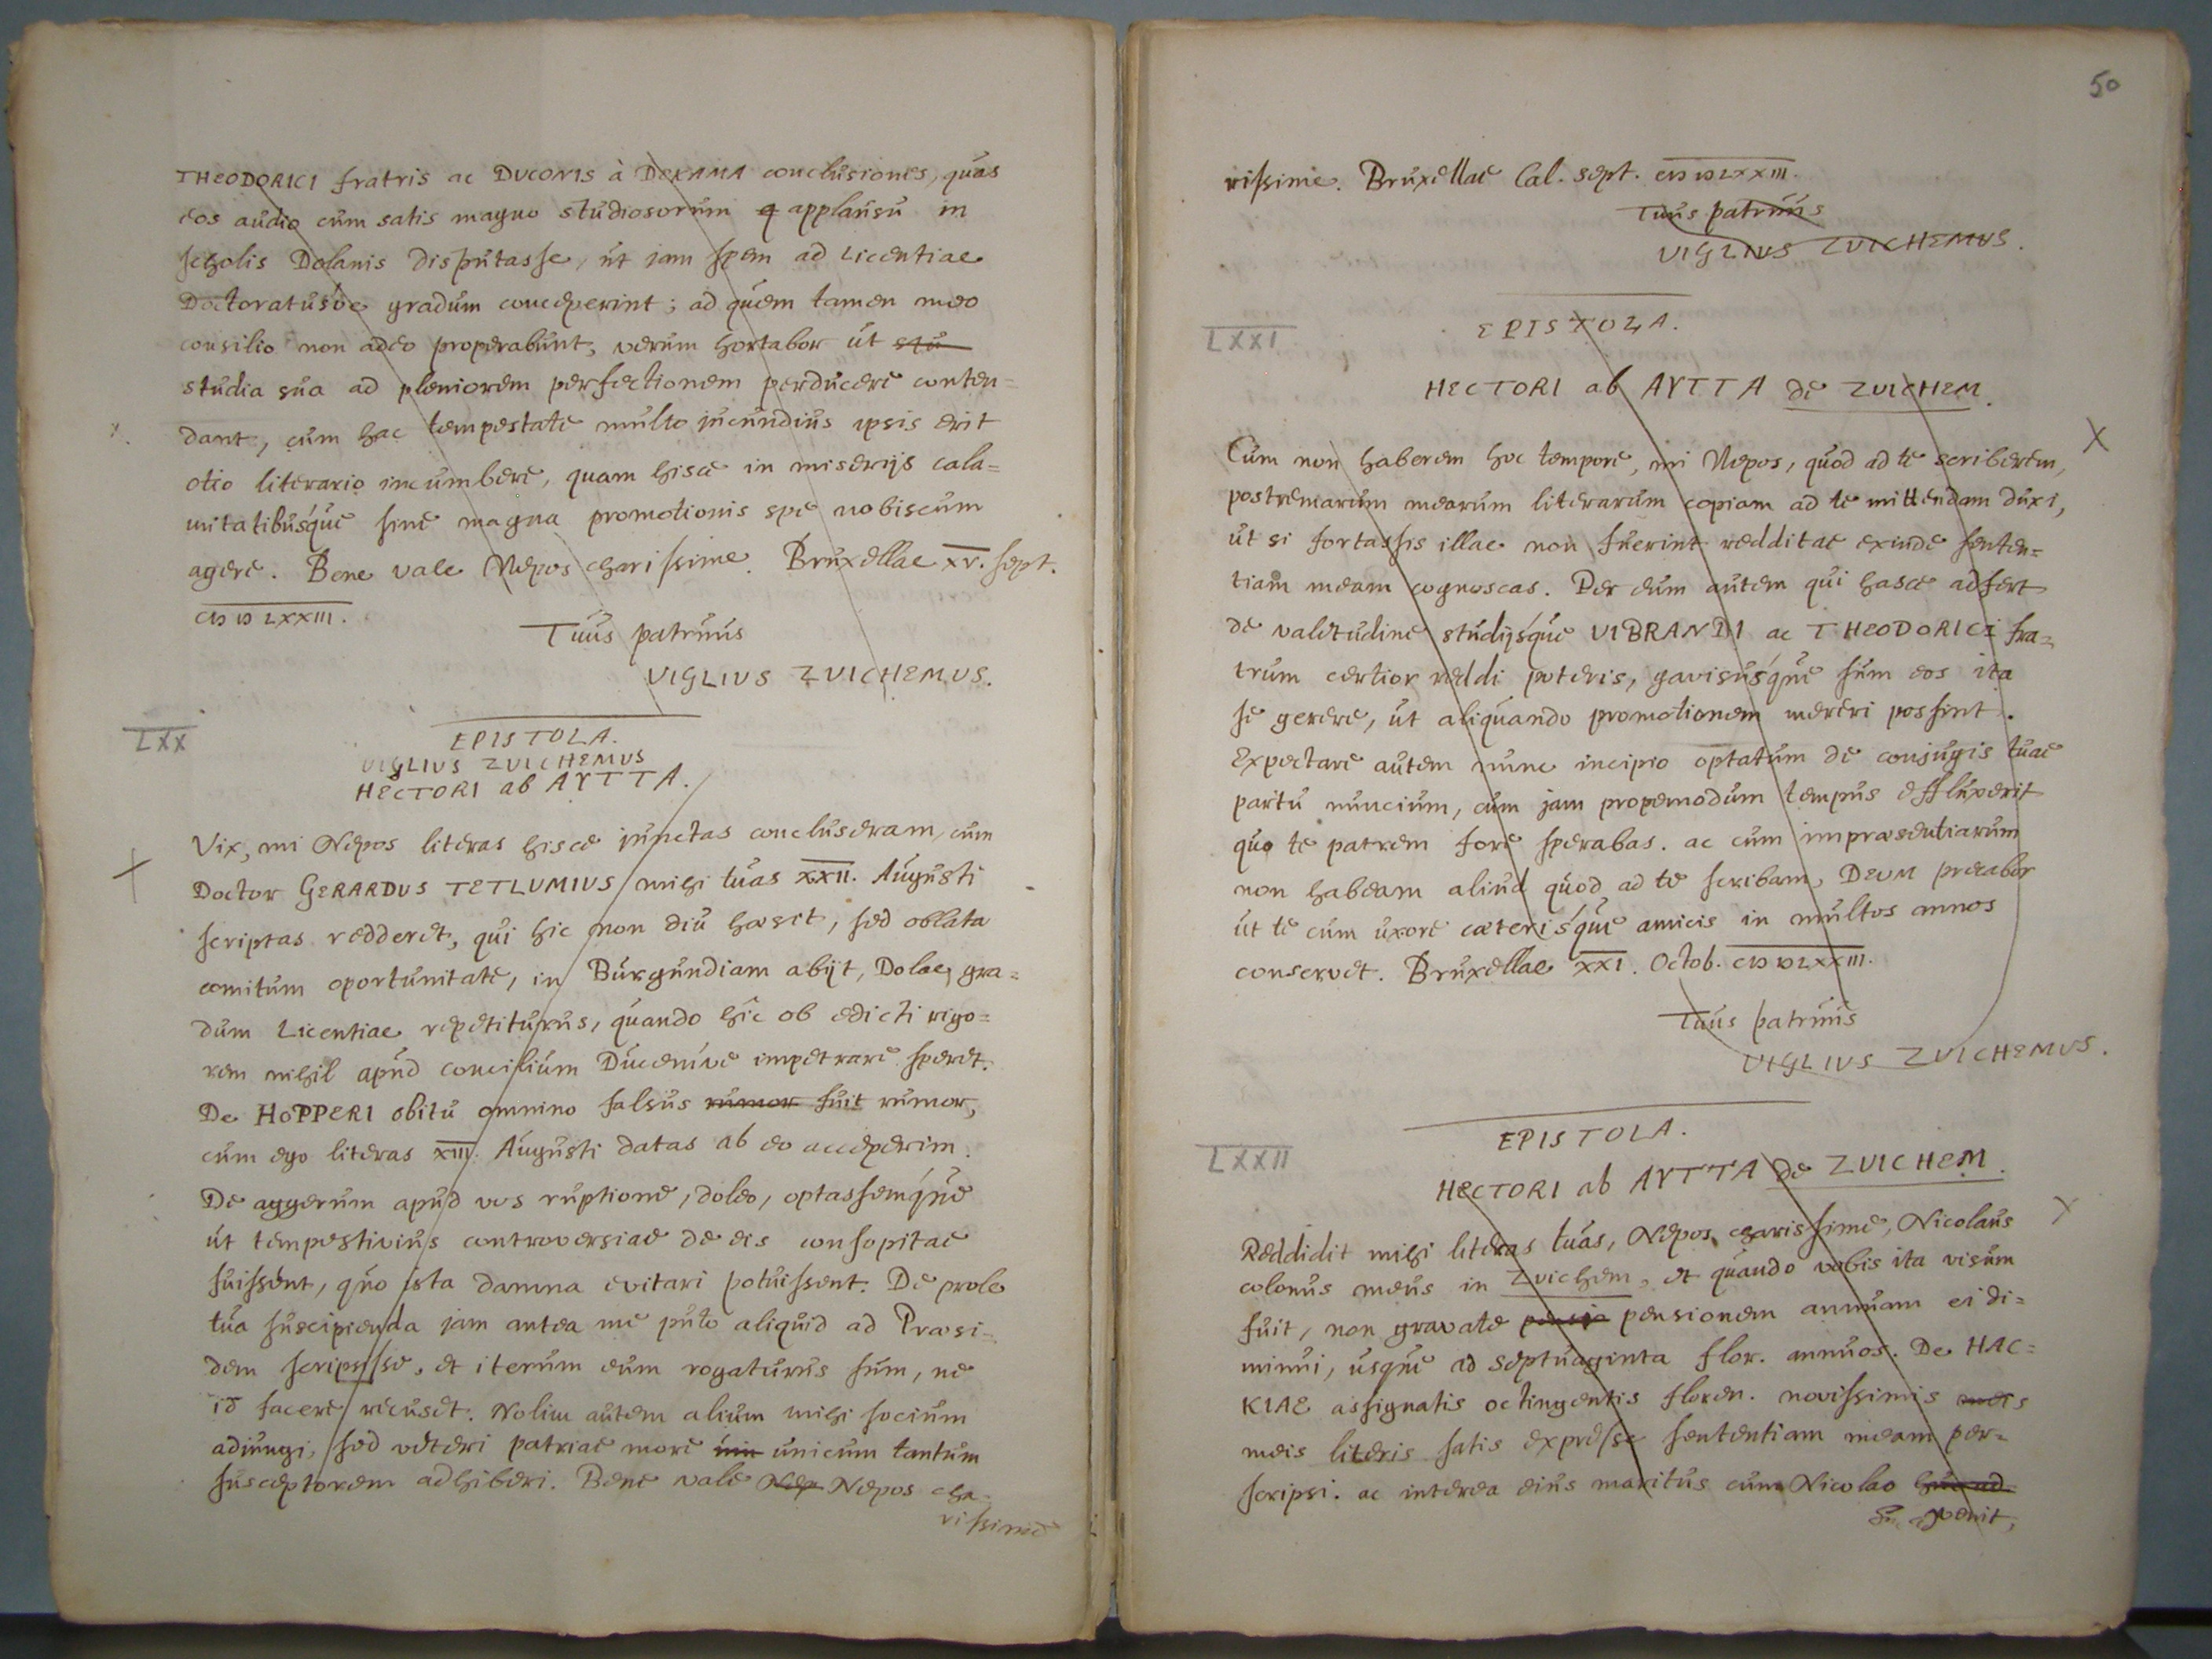 THEODORICI fratris ac DUCONIS à DEKAMA conclusiones, quas
eos audio cum satis magno studiosorum applausu in
scholis Dolanis disputasse, ut jam spem ad Licentiae
Doctoratusve gradum conceperint; ad quem tamen meo
consilio non adeo properabunt, verum hortabor ut stu
studia sua ad pleniorem perfectionem perducere conten=
dant, cum hac tempestate multo jucundius ipsis erit
otio literario incumbere, quam hisce in miserijs cala=
mitatibusque sine magna promotionis spe nobiscum
agere. Bene vale Nepos charissime. Bruxellae XV. sept.
CIↃ IↃ LXXIII.
Tuus patruus
VIGLIUS ZUICHEMUS.
LXX
EPISTOLA.
VIGLIUS ZUICHEMUS
HECTORI ab AYTTA.
Vix, mi Nepos literas hisce junctas concluseram, cum
Doctor GERARDUS TETLUMIUS mihi tuas XXII. Augusti
scriptas redderet, qui hic non diu haesit, sed oblata
comitum oportunitate, in Burgundiam abijt, Dolae gra=
dum Licentiae repetiturus, quando hîc ob edicti rigo=
rem nihil apud concilium Ducemve impetrare speret.
De HOPPERI obitu omnino falsus rumor fuit rumor,
cum ego literas XIII. Augusti datas ab eo acceperim.
De aggerum apud vos ruptione, doleo, optassemque
ut tempestivius controversiae de eis consopitae
fuissent, quo ista damna evitari potuissent. De prole
tua suscipienda jam antea me puto aliquid ad Praesi=
dem scripsisse, et iterum eum rogaturus sum, ne
id facere recuset. Nolim autem alium mihi socium
adiungi, sed veteri patriae more unicum tantum
susceptorem adhiberi. Bene vale Nep Nepos cha=
rissime
50
rissime. Bruxellae Cal. sept. CIↃ IↃ LXXIII.
Tuus patruus
VIGLIUS ZUICHEMUS.
LXXI
EPISTOLA.
HECTORI ab AYTTA de ZUICHEM.
Cum non haberem hoc tempore, mi Nepos, quod ad te scriberem,
postremarum mearum literarum copiam ad te mittendam duxi,
ut si fortassis illae non fuerint redditae exinde senten=
tiam meam cognoscas. Per eum autem qui hasce adfert
de valetudine studijsque VIBRANDI ac THEODORICI fra=
trum certior reddi poteris, gavisusque sum eos ita
se gerere, ut aliquando promotionem mereri possint.
Expectare autem nunc incipio optatum de conjugis tuae
partu nuncium, cum jam propemodum tempus effluxerit
quo te patrem fore sperabas. ac cum impraesentiarum
non habeam aliud quod ad te scribam, DEUM precabor
ut te cum uxore caeterisque amicis in multos annos
conservet. Bruxellae XXI. Octob. CIↃ IↃ LXXIII.
Tuus patruus
VIGLIUS ZUICHEMUS.
LXXII
EPISTOLA.
HECTORI ab AYTTA de ZUICHEM.
Reddidit mihi literas tuas, Nepos charissime, Nicolaus
colonus meus in Zuichem, et quando vobis ita visum
fuit, non gravate pensio pensionem annuam ei di=
minui, usque ad septuaginta flor. annuos. De HAC=
KIAE assignatis octingentis floren. novissimis meis
meis literis satis expresse sententiam meam per=
scripsi. ac interea eius maritus cum Nicolao huc ad
venit,